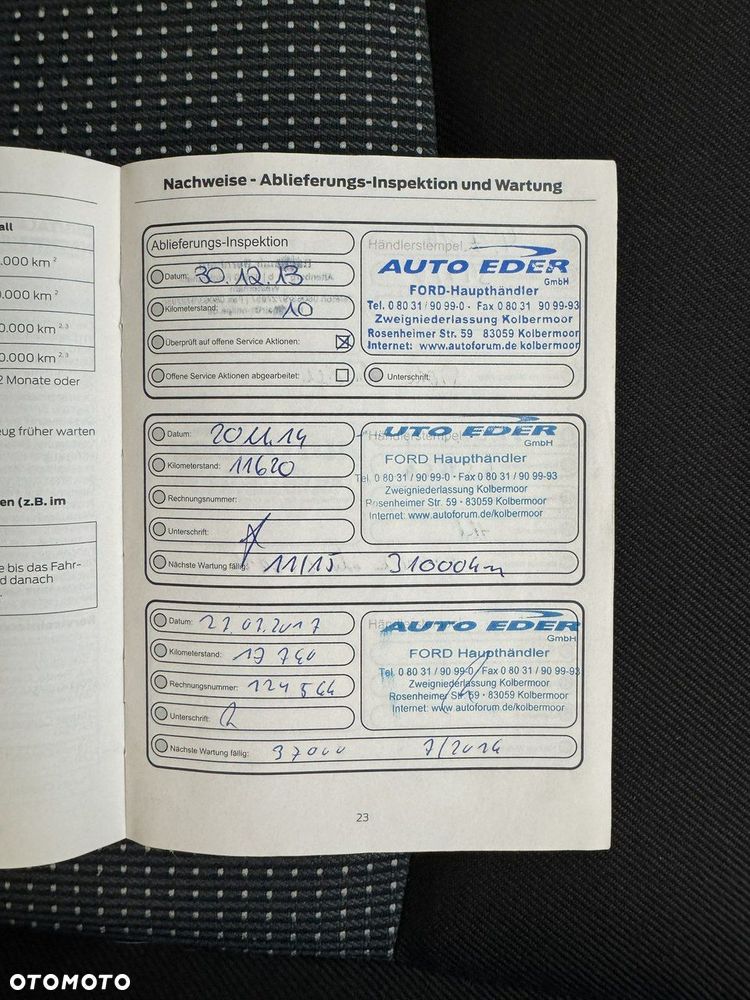 all
.000 km 2
0.000 km 2
0.000 km 2, 3
0.000 km 2, 3
2 Monate oder
eug früher warten
en (z.B. im
e bis das Fahr-
d danach
Nachweise - Ablieferungs-Inspektion und Wartung
Ablieferungs-Inspektion
Datum: 30.12.13
Kilometerstand: 10
Überprüft auf offene Service Aktionen:
Offene Service Aktionen abgearbeitet:
Händlerstempel
AUTO EDER
GmbH
FORD-Haupthändler
Tel. 0 80 31 / 90 99-0 · Fax 0 80 31 90 99-93
Zweigniederlassung Kolbermoor
Rosenheimer Str. 59 83059 Kolbermoor
Internet: www.autoforum.de kolbermoor
Unterschrift:
Datum: 20.11.14
Kilometerstand: 11620
Rechnungsnummer:
Unterschrift:
Händlerstempel
UTO EDER
GmbH
FORD Haupthändler
Tel. 0 80 31 / 90 99-0 · Fax 0 80 31 / 90 99-93
Zweigniederlassung Kolbermoor
Rosenheimer Str. 59 · 83059 Kolbermoor
Internet: www.autoforum.de/kolbermoor
Nächste Wartung fällig: 11/15 31000km
Datum: 27.07.2017
Kilometerstand: 17740
Rechnungsnummer:
Unterschrift:
AUTO EDER
GmbH
FORD Haupthändler
Tel. 0 80 31 / 90 99-0 / Fax 0 80 31 / 90 99-93
Zweigniederlassung Kolbermoor
Rosenheimer Str. 59 · 83059 Kolbermoor
Internet: www.autoforum.de/kolbermoor
Nächste Wartung fällig: 37000
23
OTOMOTO